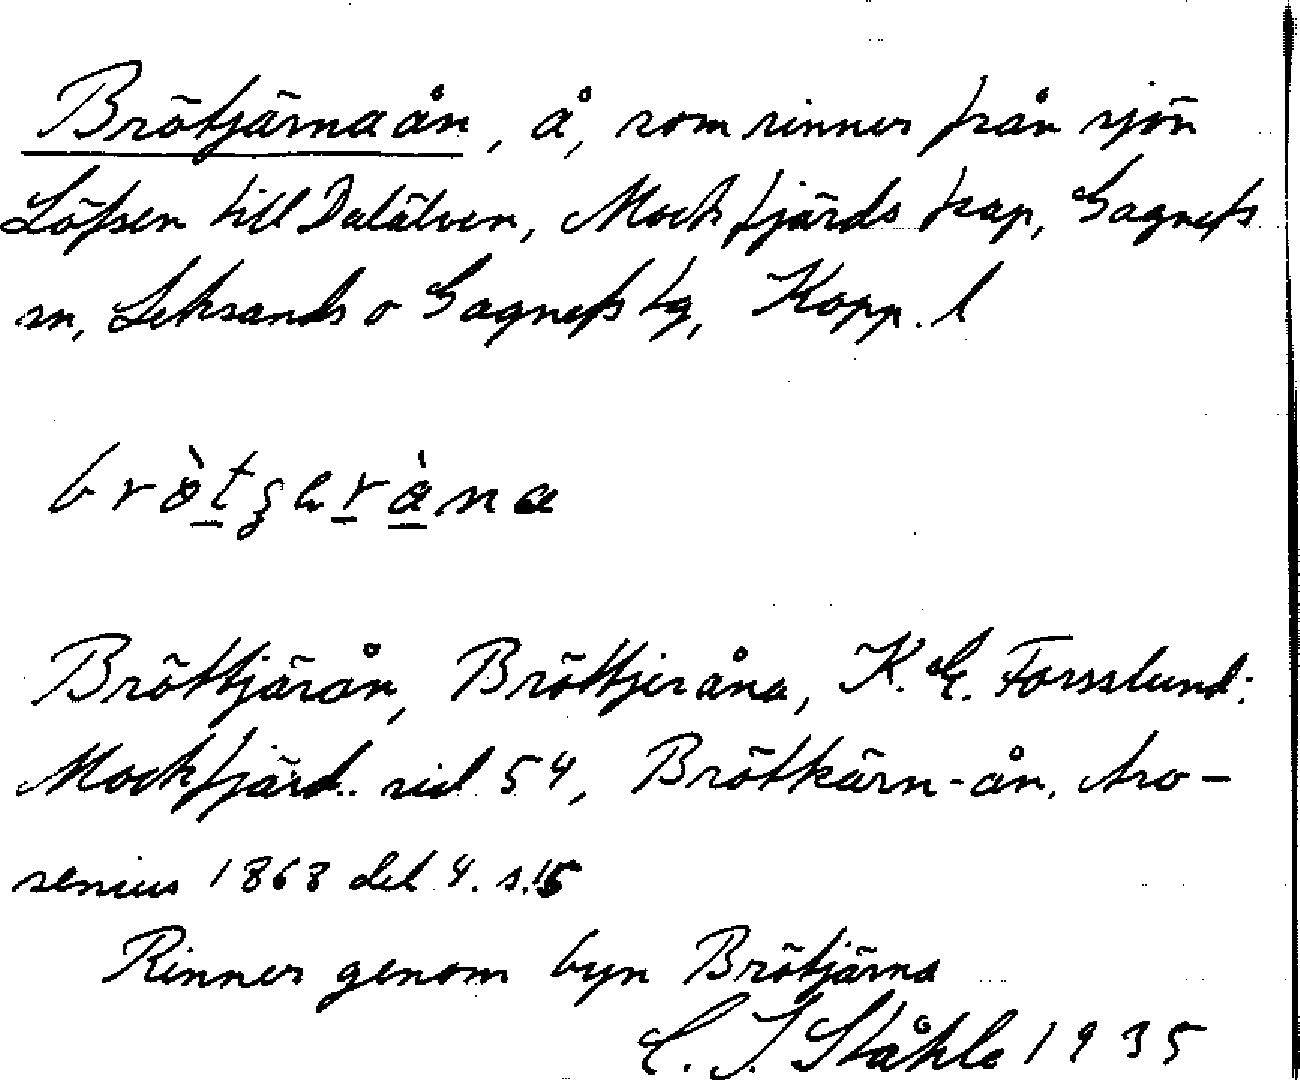 Brötjärnaån, å, som rinner från sjön
Löfsen till Dalälven, Mockfjärds kap, Gagnefs
sn, Leksands o Gagnefs tg, Kopp. l
Bröttjärån, Bröttjeråna, K. E. Forsslund:
Mockfjärd. sid 54, Brötkärn-ån. Aro-
senius 1868 del 4. s.
Rinner genom byn Brötjärna
C. I. Ståhle 1935